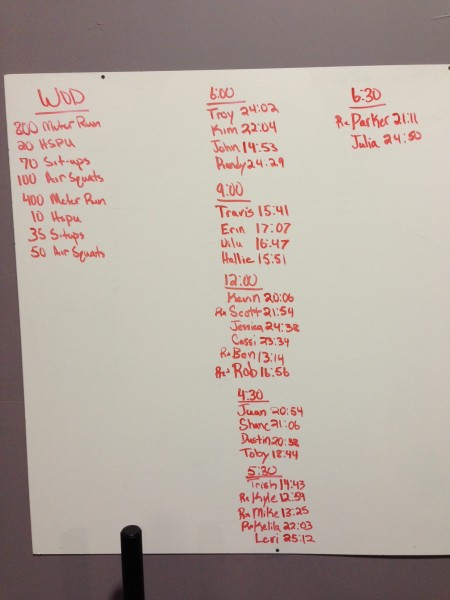 WOD
800 Meter Run
20 HSPU
70 Sit-ups
100 Air Squats
400 Meter Run
10 Hspu
35 Situps
50 Air Squats
6:00
Troy 24:02
Kim 22:04
John 14:53
Randy 24:29
9:00
Travis 15:41
Erin 17:07
16:47
Hallie 15:51
12:00
Kevin 20:06
Rx Scott 21:54
Jessica 24:38
Cassi 23:34
Rx Ben 13:14
Rx+ Rob 16:56
4:30
Juan 20:54
Shane 21:06
Dustin 20:38
Toby 18:44
5:30
Trish 19:43
Rx Kyle 12:59
Rx Mike 13:25
Rx Kelila 22:03
Levi 25:12
6:30
Rx Parker 21:11
Julia 24:50